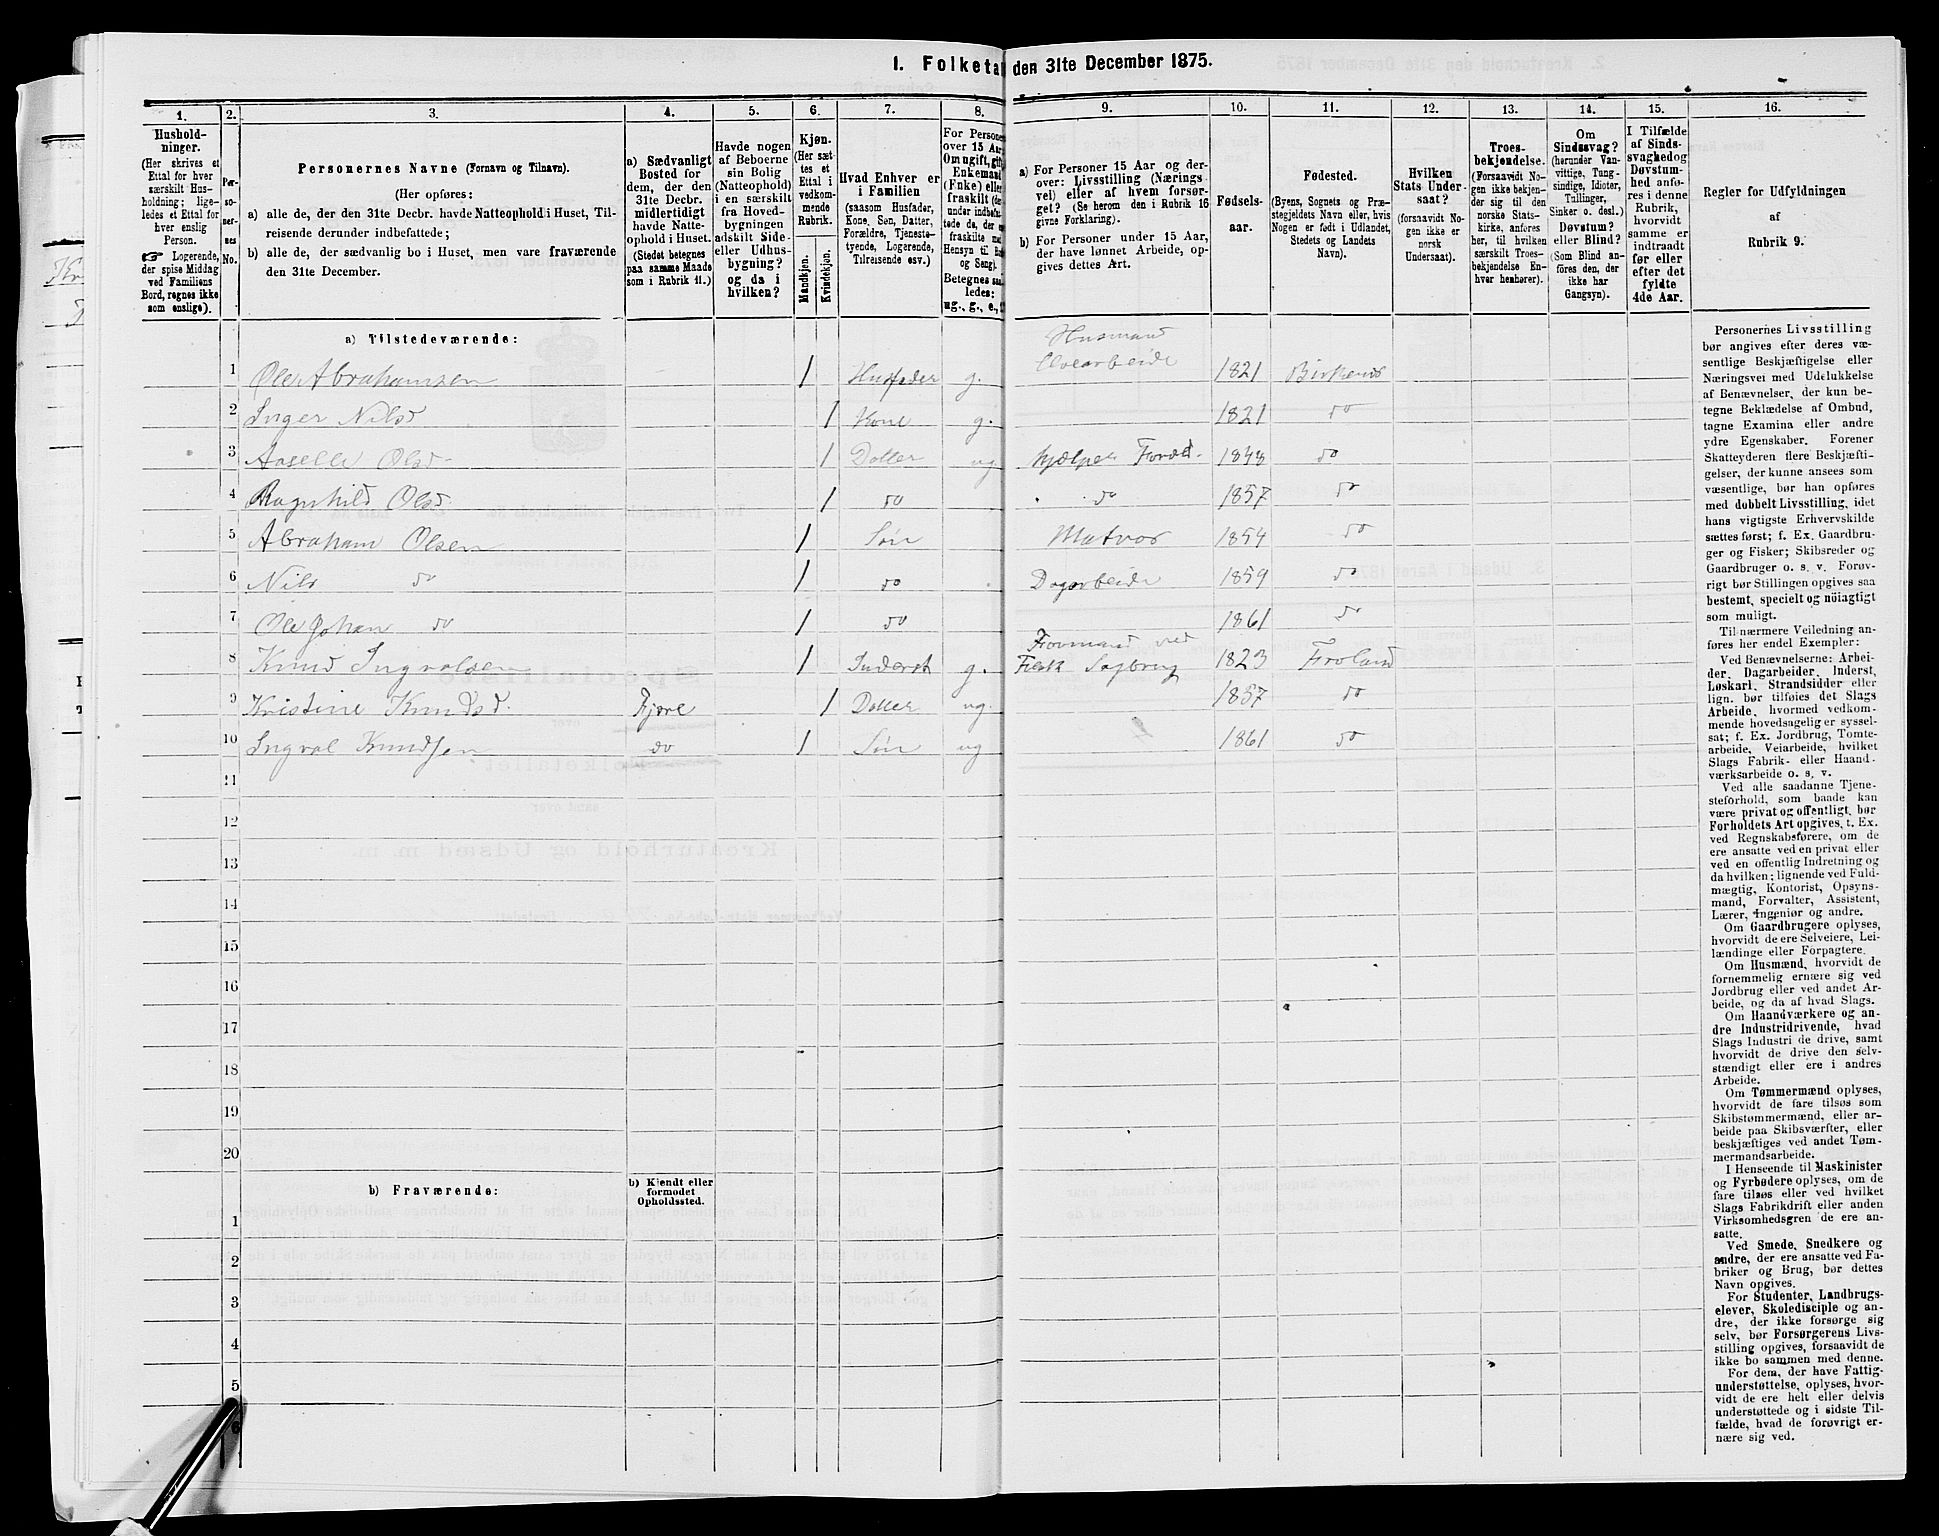 1. Folketa den 31te December 1875.
1.
Hushold-
ninger.
(Her skrives et
Ettal for hver
særskilt Hus-
holdning; lige-
ledes et Ettal for
hver enslig
Person.
☞ Logerende,
der spise Middag
ved Familiens
Bord, regnes ikke
som enslige).
2.
Per-
so-
ner-
nes
No.
3.
Personernes Navne (Fornavn og Tilnavn).
(Her opføres:
a) alle de, der den 31te Decbr. havde Natteophold i Huset, Til-
reisende derunder indbefattede;
b) alle de, der sædvanlig bo i Huset, men vare fraværende
den 31te December.
4.
a) Sædvanligt
Bosted for
dem, der den
31te Decbr.
midlertidigt
havde Natte-
ophold i Huset.
(Stedet betegnes
paa samme Maade
som i Rubrik 11.)
5.
Havde nogen
af Beboerne
sin Bolig
(Natteophold)
i en særskilt
fra Hoved-
bygningen
adskilt Side-
eller Udhus-
bygning?
og da i
hvilken?
6.
Kjøn.
(Her sæt-
tes et
Ettal i
vedkom-
mende
Rubrik.
Mandkjøn.
Kvindekjøn.
7.
Hvad Enhver er
i Familien
(saasom Husfader,
Kone, Søn, Datter,
Forældre, Tjeneste-
tyende, Logerende,
Tilreisende osv.).
8.
For Persone
over 15 Aa
Om ugift, gift
Enkemand
(Fnke) elle
fraskilt (der-
under indbefat-
tede de, der e
fraskilte me
Hensyn til
og Seng).
Betegnes saa
ledes:
ug., g., e.,
9.
a) For Personer 15 Aar og der-
over: Livsstilling (Nærings
vei) eller af hvem forsør-
get? (Se herom den i Rubrik 16
givne Forklaring).
b) For Personer under 15 Aar,
der have lønnet Arbeide, op-
gives dettes Art.
10.
Fødsels-
aar.
11.
Fødested.
(Byens, Sognets og Præ-
stegjeldets Navn eller, hvis
Nogen er født i Udlandet,
Stedets og Landets
Navn).
12.
Hvilken
Stats Under-
saat?
(forsaavidt No-
gen ikke er
norsk
Undersaat).
13.
Troes-
bekjendelse.
(Forsaavidt No-
gen ikke bekjen-
der sig til den
norske Stats-
kirke, anføres
her, til hvilken
særskilt Troes-
bekjendelse En-
hver henhører).
14.
Om
Sindssvag?
(herunder Van-
vittige, Tung-
sindige, Idioter,
Tullinger,
Sinker o. desl.)
Døvstum?
eller Blind?
(Som Blind an-
føres den, der
ikke har
Gangsyn).
15.
I Tilfælde
af Sinds-
svaghed og
Døvstum-
hed anfø-
res i denne
Rubrik,
hvorvidt
samme er
indtraadt
før eller
efter det
fyldte
4de Aar.
16.
Regler for Udfyldningen
af
Rubrik 9.
a) Tilstedeværende:
1 Ole Abrahamsen 1 Husfader g. Husmand Veiarbeide 1821 Birkenes
2 Inger Nilsd 1 Kone g. 1821 do
3 Aaselle Olsd 1 Datter ug hjælper Foræl. 1848 do
4 Ragnhild Olsd. 1 do do 1857 do
5 Abraham Olsen 1 Søn Matros 1854 do
6 Nils do 1 do Dagarbeide 1859 do
7 Ole Johan do 1 do 1861 do
8 Knud Ingvalsen 1 Inderst g. Formand ved Sagbrug 1823 Froland
9 Kristine Knudsd. 1 Datter ug. 1857 do
10 Ingval Knudsen do 1 Søn ug 1861 do
11
12
13
14
15
16
17
18
19
20
b) Fraværende:
b) Kjendt eller
formodet
Opholdssted.
1
2
3
4
5
Personernes Livsstilling
bør angives efter deres væ-
sentlige Beskjæftigelse eller
Næringsvei med Udelukkelse
af Benævnelser, der kun be-
tegne Beklædelse af Ombud,
tagne Examina eller andre
ydre Egenskaber. Forener
Skatteyderen flere Beskjæfti-
gelser, der kunne ansees som
væsentlige, bør han opføres
med dobbelt Livsstilling, idet
hans vigtigste Erhvervskilde
sættes først; f. Ex. Gaardbru-
ger og Fisker; Skibsreder og
Gaardbruger o. s. v. Forøv-
rigt bør Stillingen opgives saa
bestemt, specielt og nöiagtigt
som muligt.
Til nærmere Veiledning an-
føres her endel Exempler:
Ved Benævnelserne: Arbei-
der, Dagarbeider, Inderst,
Løskarl, Strandsidder eller
lign. bør tilføies det Slags
Arbeide, hvormed vedkom-
mende hovedsagelig er syssel-
sat; f. Ex. Jordbrug, Tomte-
arbeide, Veiarbeide, hvilket
Slags Fabrik- eller Haand-
værksarbeide o. s. v.
Ved alle saadanne Tjene-
steforhold, som baade kan
være privat og offentligt, bør
Forholdets Art opgives, t. Ex.
ved Regnskabsførere, om de
ere ansatte ved en privat eller
ved en offentlig Indretning og
da hvilken; lignende ved Fuld-
mægtig, Kontorist, Opsyns-
mand, Forvalter, Assistent,
Lærer, Ingeniør og andre.
Om Gaardbrugere oplyses,
hvorvidt de ere Selveiere, Lei-
lændinge eller Forpagtere.
Om Husmænd, hvorvidt de
fornemmelig ernære sig ved
Jordbrug eller ved andet Ar-
beide, og da af hvad Slags.
Om Haandværkere og an-
dre Industridrivende, hvad
Slags Industri de drive, samt
hvorvidt de drive den selv-
stændigt eller ere i andres
Arbeide.
Om Tømmermænd oplyses,
hvorvidt de fare tilsøs som
Skibstømmermænd, eller ar-
beide paa Skibsværfter, eller
beskjæftiges ved andet Tøm-
mermandsarbeide.
I Henseende til Maskinister
og Fyrbødere oplyses, om de
fare tilsøs eller ved hvilket
Slags Fabrikdrift eller anden
Virksomhedsgren de ere an-
satte.
Ved Smede, Snedkere og
andre, der ere ansatte ved Fa-
briker og Brug, bør dettes
Navn opgives.
For Studenter, Landbrugs-
elever, Skoledisciple og an-
dre, der ikke forsørge sig
selv, bør Forsørgerens Livs-
stilling opgives, forsaavidt de
ikke bo sammen med denne.
For dem, der have Fattig-
understøttelse, oplyses, hvor-
vidt de ere helt eller delvis
understøttede og i sidste Til-
fælde, hvad de forøvrigt er-
nære sig ved.